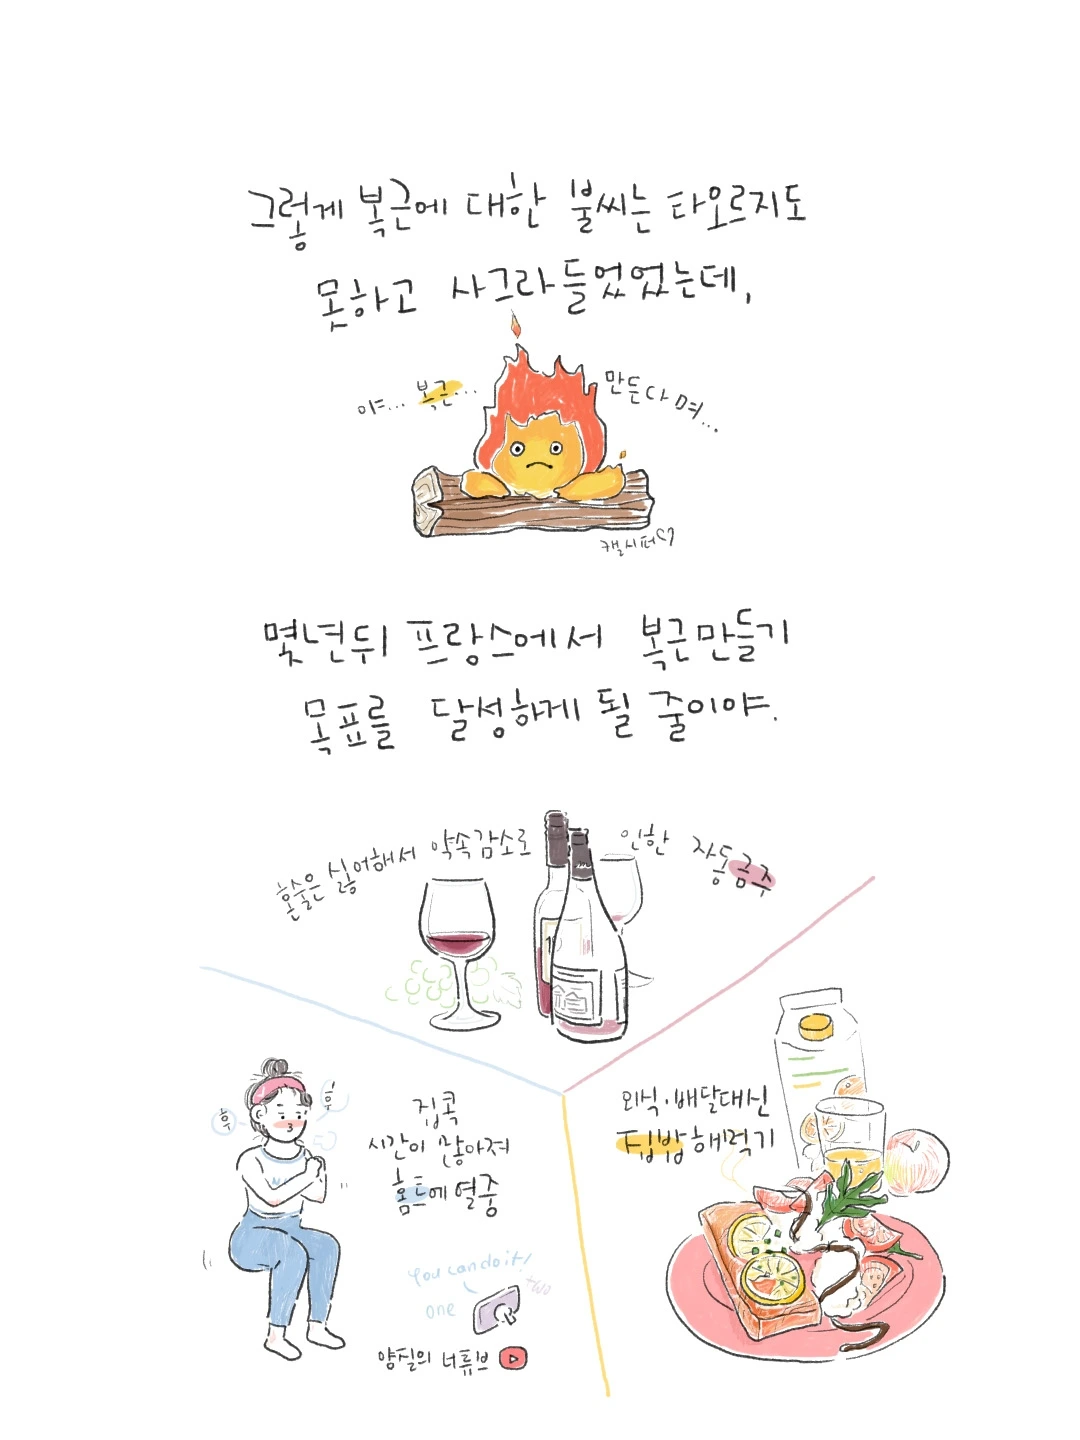 그렇게 복근에 대한 불씨는 타오르지도
못하고 사그라들었었는데,
야... 복근... 만든다며...
캘시퍼♡
몇년뒤 프랑스에서 복근만들기
목표를 달성하게 될 줄이야.
혼술은 싫어해서 약속감소로 인한 자동금주
후
후
집콕
시간이 많아져
홈트에 열중
you can do it!
one
two
양질의 너튜브
외식·배달대신
집밥해먹기